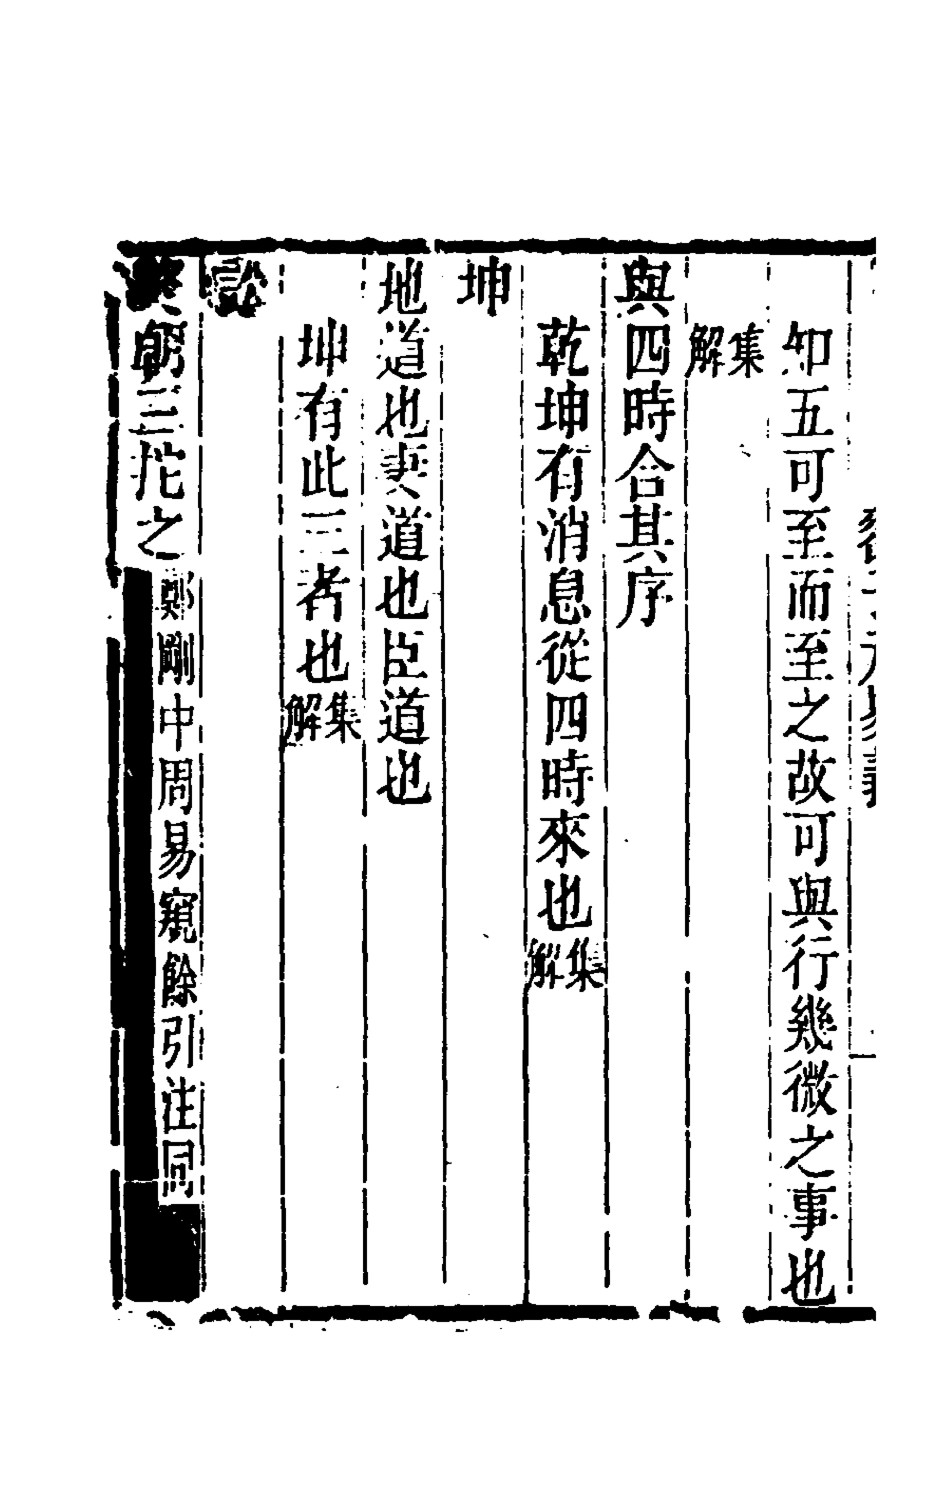 知五可至而至之故可與行幾微之事也
集解
與四時合其序
乾坤有消息從四時來也集解
坤
地道也妻道也臣道也
坤有此三者也集解
訟
終朝三拕之鄭剛中周易窺餘引注同